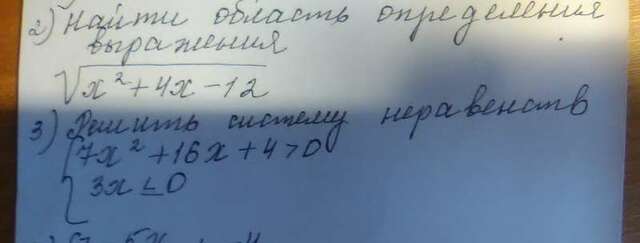 2) Найти область определения
выражения
√x²+4x-12
3) Решить систему неравенств
{7x²+16x+4>0
3x≤0